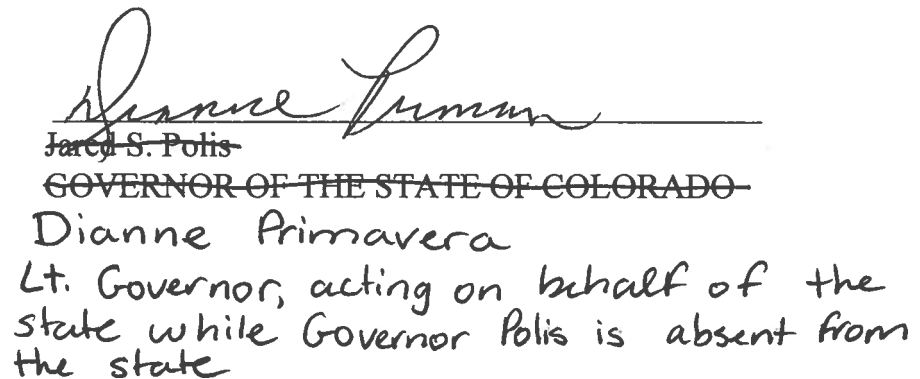 Dianne Primavera
Jared S. Polis
GOVERNOR OF THE STATE OF COLORADO
Dianne Primavera
Lt. Governor, acting on behalf of the
state while Governor Polis is absent from
the state